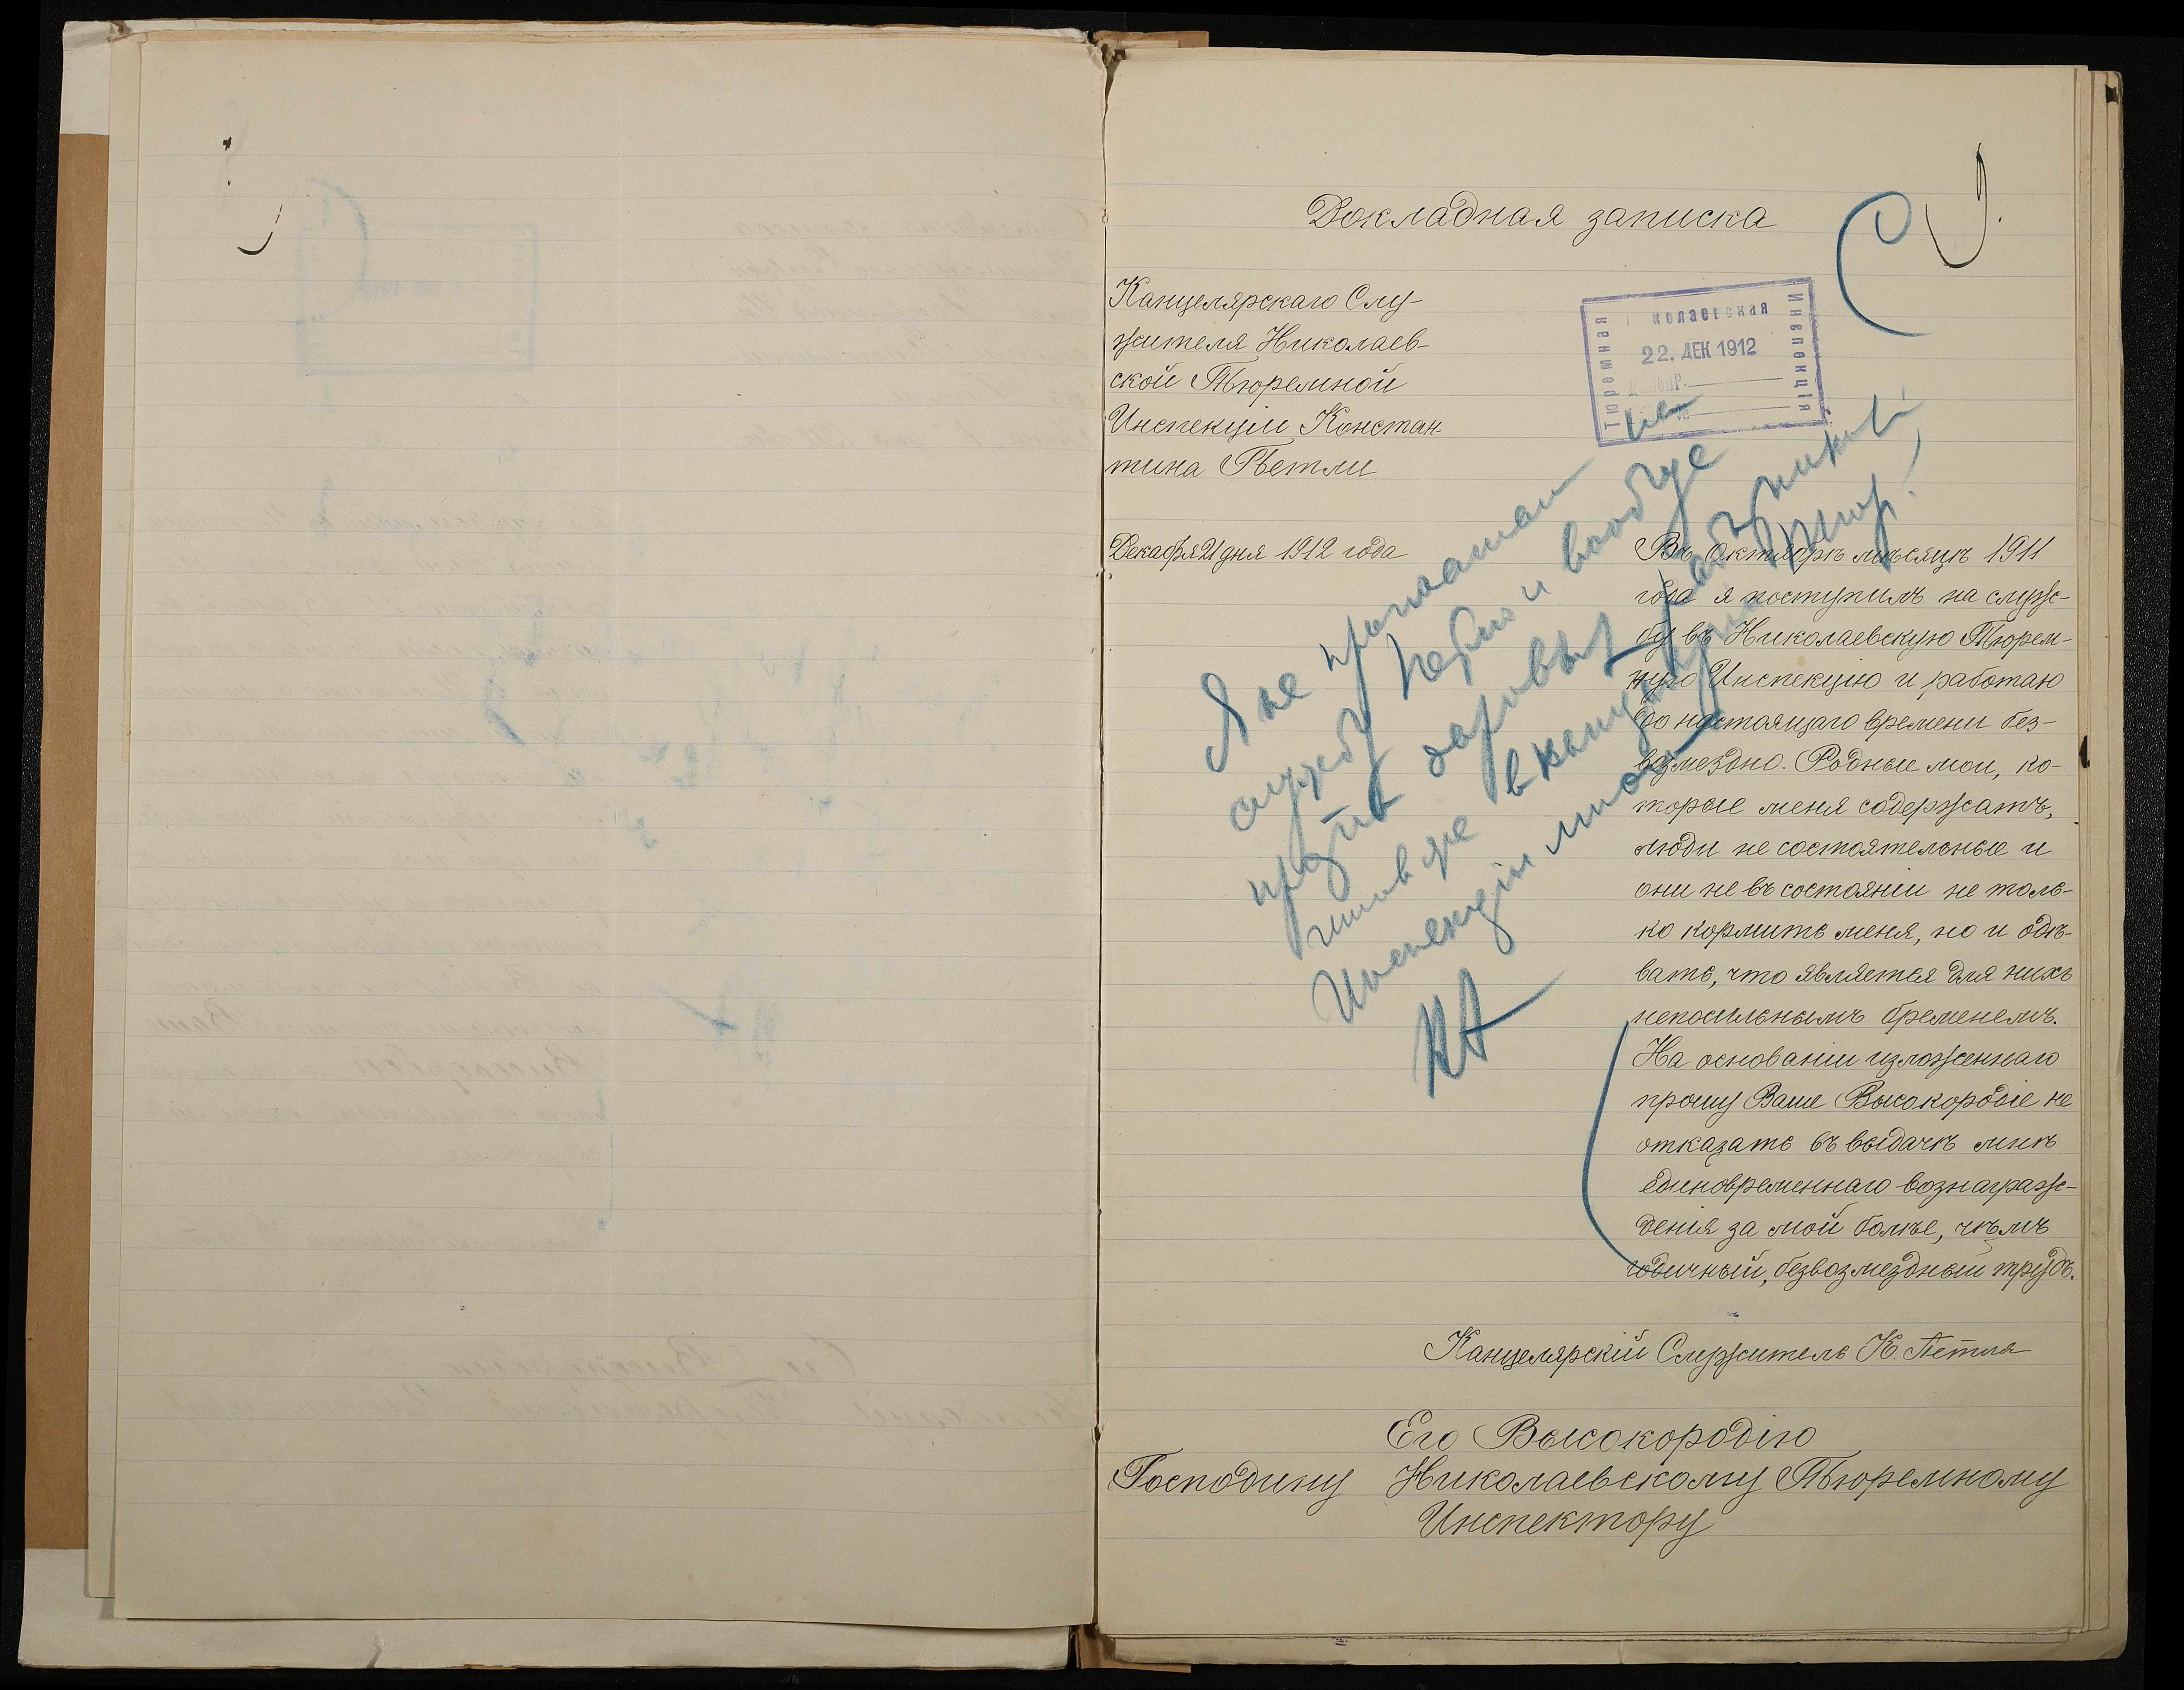 Докладная записка
9.
Канцелярскаго Слу-
жителя Николаев-
ской Тюремной
Инспекціи Констан-
тина Петли
Тюремная
Николаевская
Инспекція
22. ДЕК 1912
Декабря 21 дня 1912 года
Въ Октябрѣ мѣсяцѣ 1911
года я поступилъ на служ-
бу въ Николаевскую Тюрем-
ную Инспекцію и работаю
до настоящаго времени без-
возмездно. Родные мои, ко-
торые меня содержатъ,
люди не состоятельные и
они не въ состояніи не толь-
ко кормить меня, но и одѣ-
вать, что является для нихъ
непосильнымъ бременемъ.
На основаніи изложеннаго
прошу Ваше Высокородіе не
отказать въ выдачѣ мнѣ
единовременнаго вознаграж-
денія за мой болѣе, чѣмъ
годичный, безвозмездный трудъ.
Я не приглашал на
службу Петлю и вообще
против даровых работников,
в канцеляріи
Инспекціи много
КА
Канцелярскій Служитель К. Петля
Его Высокородію
Господину Николаевскому Тюремному
Инспектору